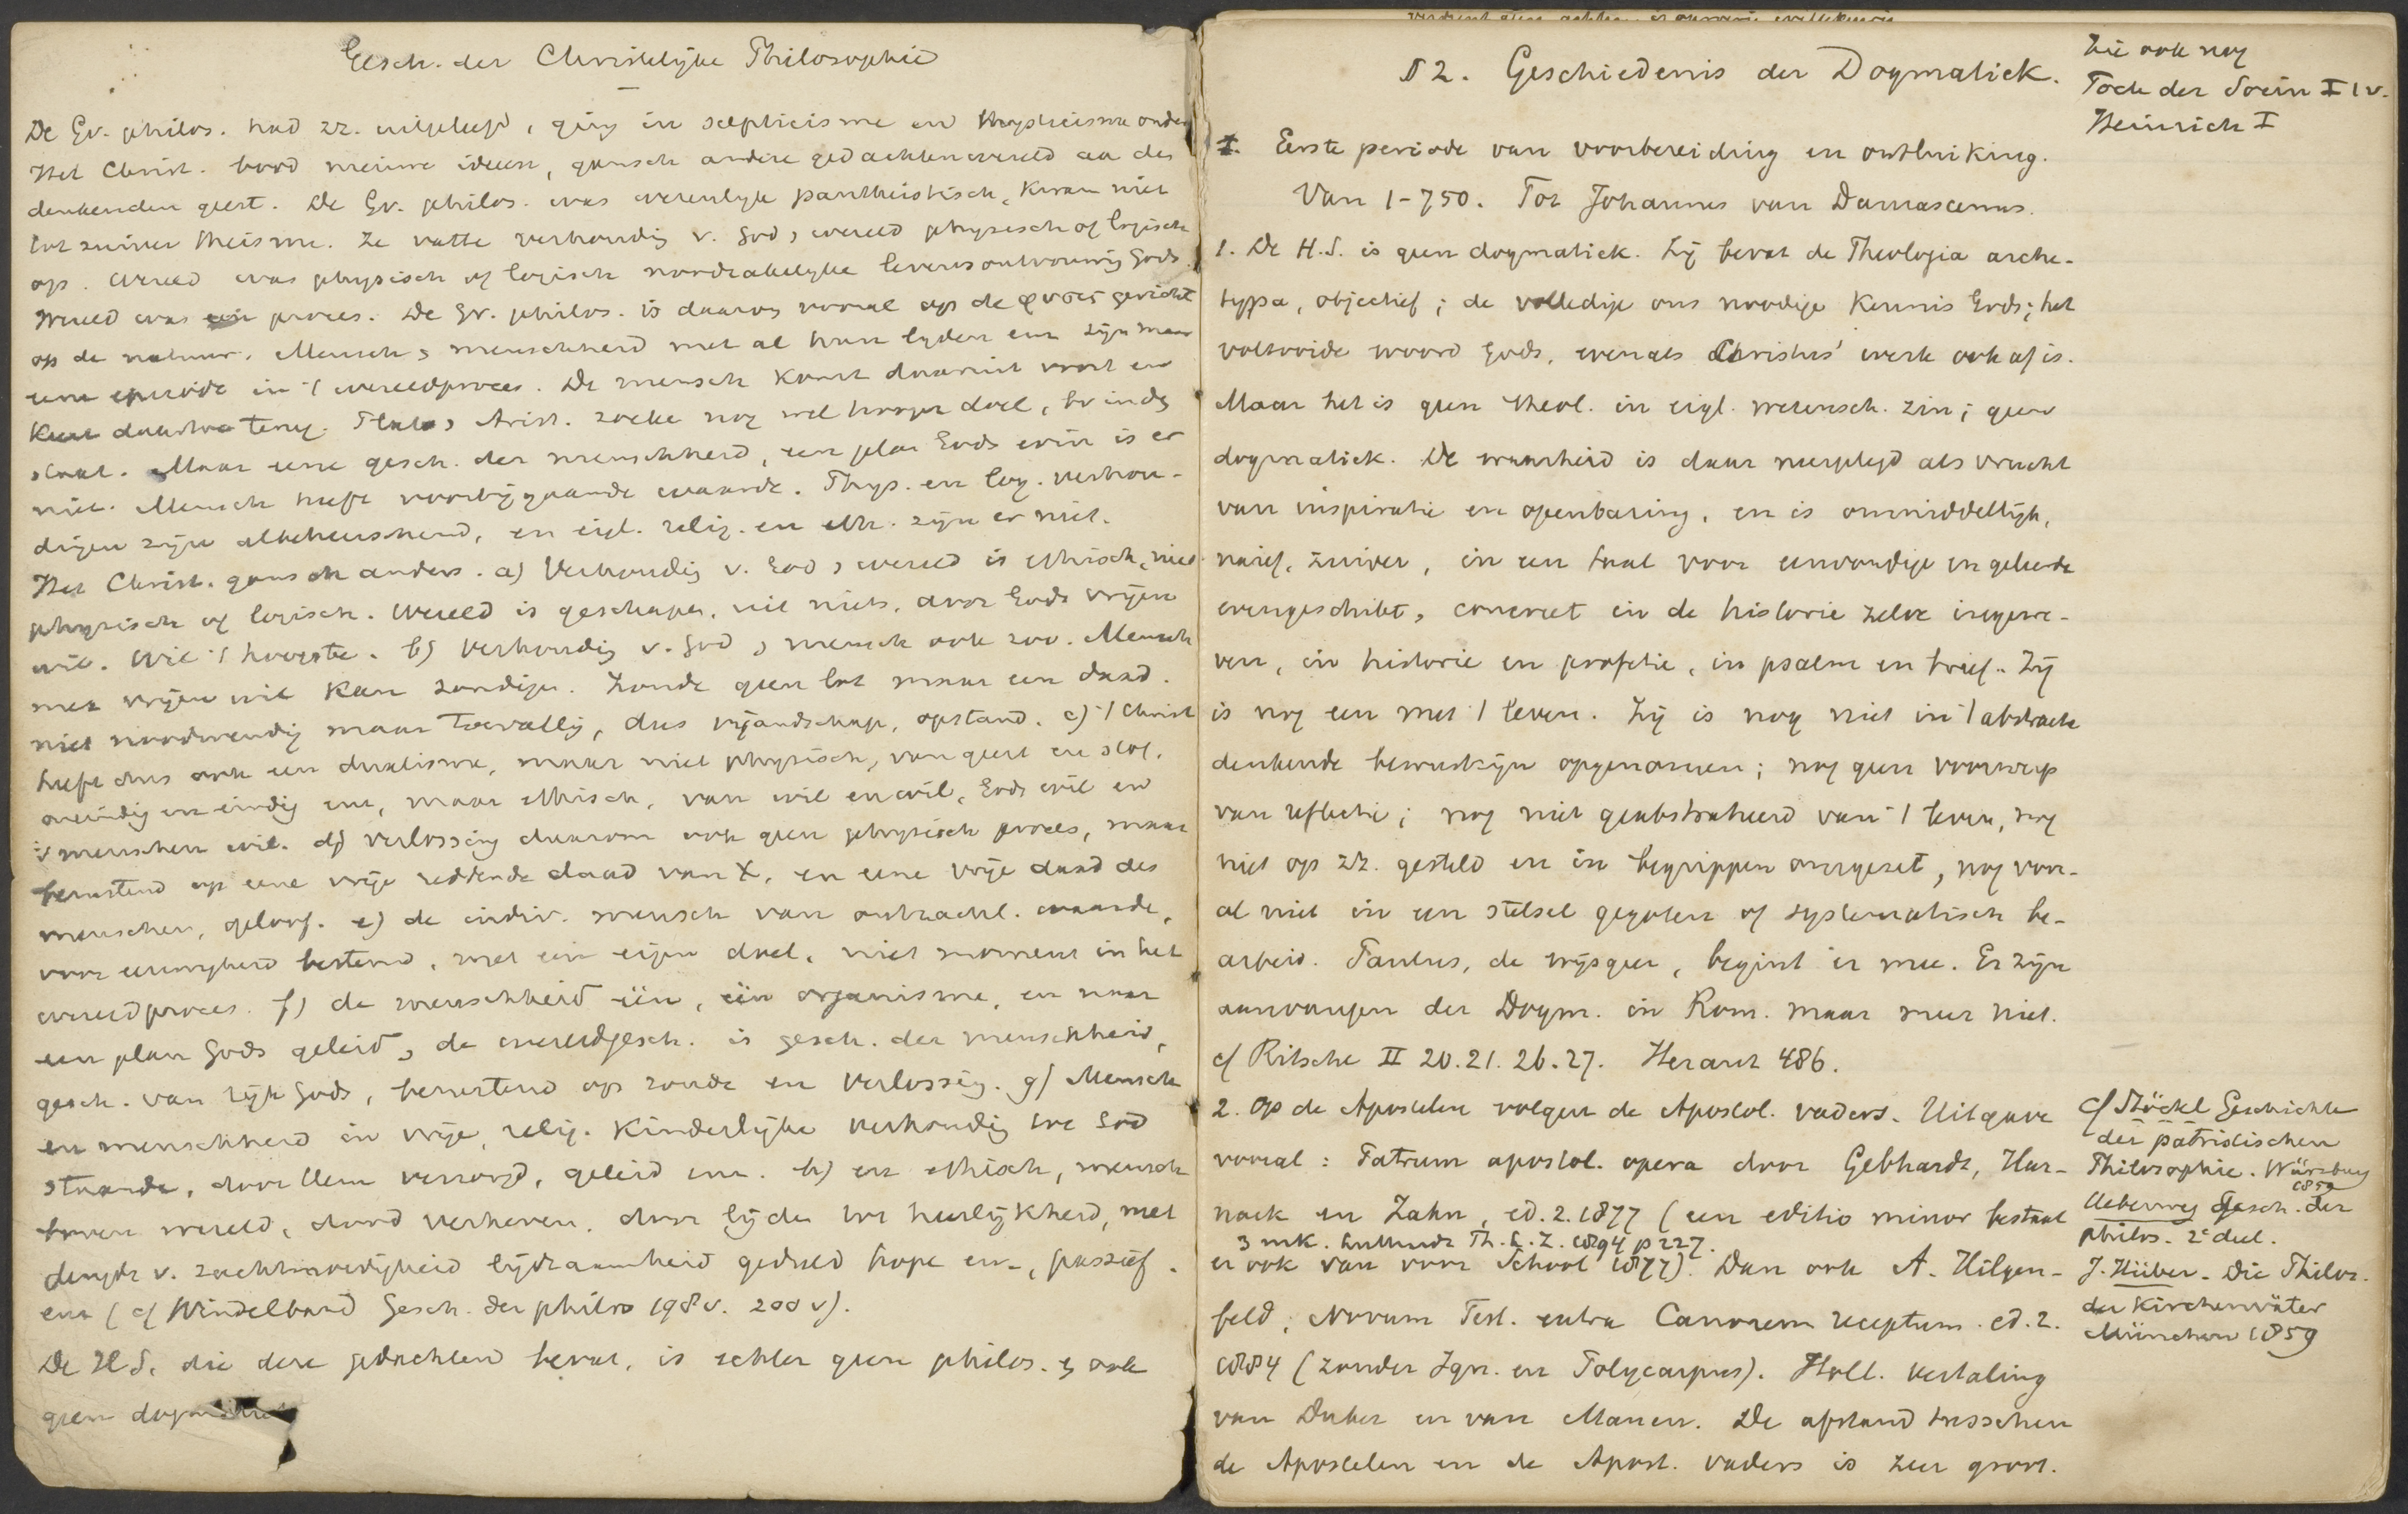 Gesch. der Christelijke Philosophie
De Gr. philos. had zz. uitgeleefd, ging in scepticisme en Mysticisme onder
Het Christ. bood nieuwe ideeen, gansch andere gedachtenwereld aa den
denkenden geest. De Gr. philos. was wezenlijk pantheistisch, kwam niet
tot zuiver theisme. Ze vatte verhoudig v. God & wereld physisch of logisch
op. Wereld was physisch of logisch noodzakelijke levensontvouwing Gods.
Wereld was een proces. De Gr. philos. is daarom vooral op de φυσις gericht
op de natuur. Mensch & menschheid met al hun lijden enz zijn maar
eene episode in 't wereldproces. De mensch komt daaruit voort en
keert daartoe terug. Plato & Arist. zoeke nog wel hooger doel, bv in den
staat. Maar eene gesch. der menschheid, een plan Gods erin is er
niet. Mensch heeft voorbijgaande waarde. Phys. en log. verhou-
dingen zijn albeheerschend, en eigl. relig. en eth. zijn er niet.
Het Christ. gansch anders. a) Verhoudig v. God & wereld is ethisch, niet
physisch of logisch. Wereld is geschapen, uit niets, door Gods vrijen
wil. Wil 't hoogste. b) Verhoudig v. God & mensch ook zoo. Mensch
met vrijen wil kan zondigen. Zonde geen lot maar een daad.
niet noodwendig maar toevallig, dus vijandschap, opstand. c) 't Christ
heeft dus ook een dualisme, maar niet physisch, van geest en stof,
oneindig en eindig enz, maar ethisch, van wil en wil, Gods wil en
's menschen wil. d) verlossing daarom ook geen physisch proces, maar
berustend op eene vrije reddende daad van X, en eene vrije daad des
menschen, geloof. e) de indiv. mensch van ontzachl. waarde,
voor eeuwigheid bestemd, met een eigen doel, niet moment in het
wereldproces. f) de menschheid één, één organisme, en naar
een plan Gods geleid, de wereldgesch. is gesch. der menschheid,
gesch. van rijk Gods, berustend op zonde en verlossing. g) Mensch
en menschheid in vrije, relig. kinderlijke verhoudig tot God
staande, door Hem verzorgd, geleid enz. h) en ethisch, mensch
boven wereld, dood verheven, door lijden tot heerlijkheid, met
deugde v. zachtmoedigheid lijdzaamheid geduld hope enz, passief.
enz (cf Windelband Gesch. der philos 198 v. 200 v).
De H.S. die deze gedachten bevat, is echter geen philos. & ook
geen dogmatiek
§ 2. Geschiedenis der Dogmatiek.
Zie ook nog
Toek der Soein I 1 v.
Heinrich I
I. Eerste periode van voorbereiding en ontluiking.
Van 1-750. Tot Johannes van Damascenus.
1. De H.S. is geen dogmatiek. Zij bevat de Theologia arche-
typa, objectief; de volledige ons noodige kennis Gods; het
voltooide woord Gods, evenals Christus' werk ook af is.
Maar het is geen theol. in eigl. wetensch. zin; geen
dogmatiek. De waarheid is daar neergelegd als vrucht
van inspiratie en openbaring, en is onmiddellijk,
naief, zuiver, in een taal voor eenvoudige en geleerde
evengeschikt, concreet in de historie zelve ingewe-
ven, in historie en profetie, in psalm en brief. Zij
is nog een met 't leven. Zij is nog niet in 't abstracte
denkende bewustzijn opgenomen; nog geen voorwerp
van reflectie; nog niet geabstraheerd van 't leven, nog
niet op zz. gesteld en in begrippen omgezet, nog voor-
al niet in een stelsel gegoten of systematisch be-
arbeid. Paulus, de wijsgeer, begint er mee. Er zijn
aanvangen der Dogm. in Rom. maar meer niet.
cf Ritschl II 20. 21. 26. 27. Heraut 486.
2. Op de Apostelen volgen de Apostol. vaders. Uitgave
vooral: Patrum apostol. opera door Gebhardt, Har-
nack en Zahn, ed. 2. 1877 (een editio minor bestaat
3 mk. Th. L. Z. 1894 p 227.
er ook van voor School 1877). Dan ook A. Hilgen-
feld, Novum Test. extra Canonem receptum. ed. 2.
1884 (zonder Ign. en Polycarpus). Holl. vertaling
van Duker en van Manen. De afstand tusschen
de Apostelen en de Apost. vaders is zeer groot.
cf Stöckl Geschichte
der patristischen
Philosophie. Würzburg
1859
Ueberweg Gesch. der
philos. 2e deel.
J. Hüber. Die Philos.
der Kirchenväter
München 1859